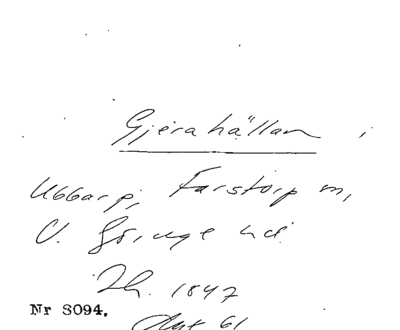 Gjerahällan i
Ubbarp, Farstorp sn,
V. Göinge hd.
1847
Nr 8094.
61